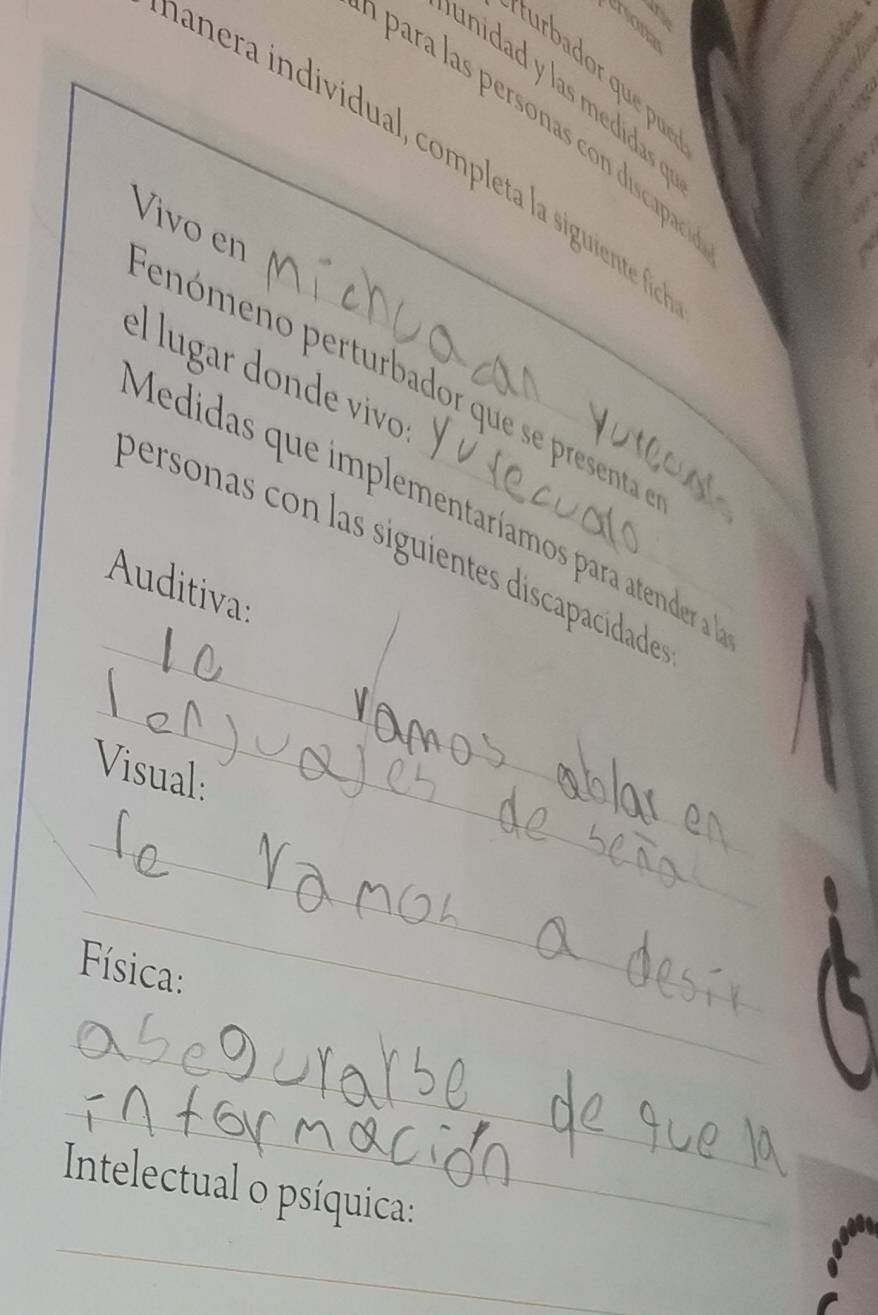 que pueda
munidad y las medidas que
para las personas con discapacidad
manera individual, completa la siguiente ficha:
Vivo en Michuacan
Fenómeno perturbador que se presenta en
el lugar donde vivo:
Medidas que implementaríamos para atender a las
personas con las siguientes discapacidades:
Auditiva:
le vamos ablar en
lenguajes de seña
Visual:
le vamos a desir
Física:
asegurarse de que la
información
Intelectual o psíquica: